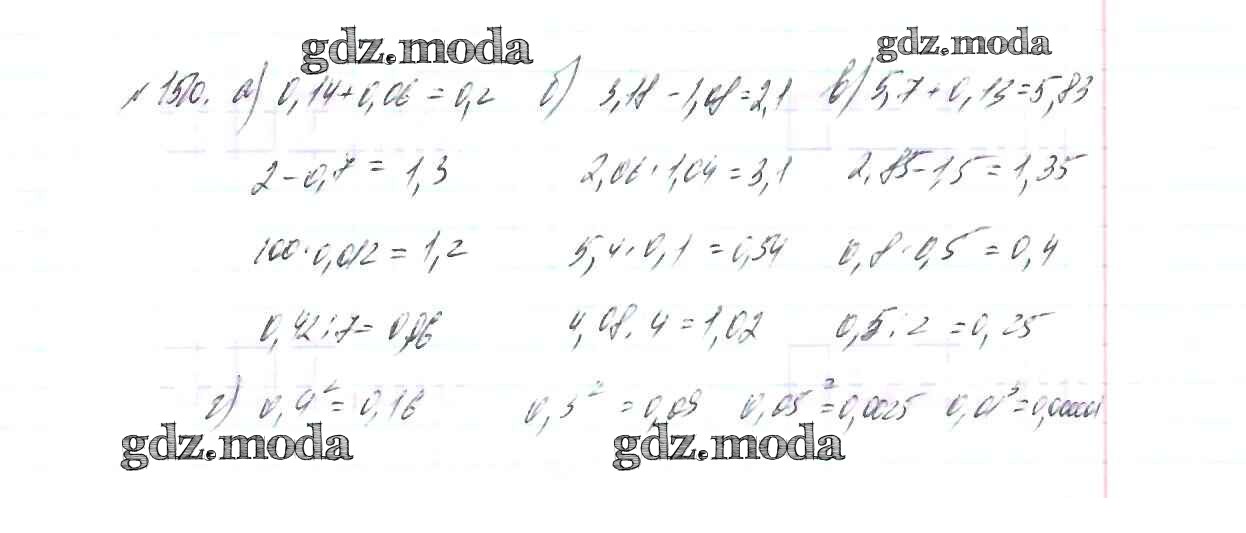 gdz.moda gdz.moda
№1510. а) 0,14+0,06=0,2 б) 3,18-1,08=2,1 в) 5,7+0,13=5,83
2-0,7=1,3 2,06+1,04=3,1 2,85-1,5=1,35
100·0,012=1,2 5,4·0,1=0,54 0,8·0,5=0,4
0,42:7=0,06 4,08:4=1,02 0,5:2=0,25
г) 0,4²=0,16 0,3²=0,09 0,05²=0,0025 0,01³=0,000001
gdz.moda gdz.moda